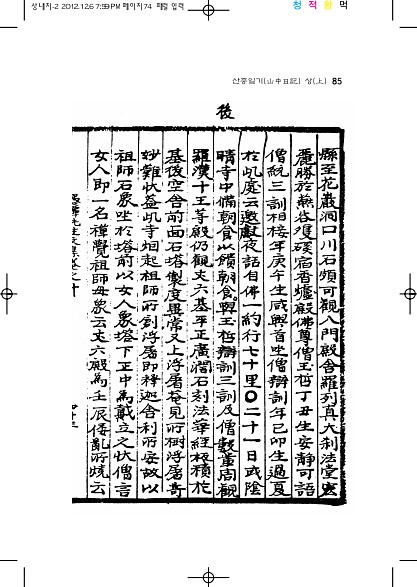 상내지-2 2012.12.6 7:59 PM 페이지74 패럴 압력
청 적 황 먹
산중일기(山中日記) 상(上) 85
後
縣至花巖洞口川石頗可觀入門殿舍羅列真大刹法堂宏
麗勝於燕谷 宿香爐殿佛尊僧玉哲丁丑生安靜可語
僧統三訓相接年庚午生咸興首坐僧辯訓年己卯生過夏
於此處云邀 夜話自佛 一約行七十里〇二十一日戊陰
晴寺中備朝食以饋朝食。與玉哲辯訓三訓及僧數輩周觀
羅漢十王等殿仍觀丈六基平正廣濶石刻法華經板積於
基後空舍前面石塔製度異常又上浮屠菴見所樹浮屠奇
妙難狀益此寺烟起祖師所刱浮屠卽釋迦舍利所安故以
祖師石象坐於塔前以女人象塔下正中爲戴立之狀僧言
女人卽一名禪覺祖師母象云丈六殿爲壬辰倭亂所燒云